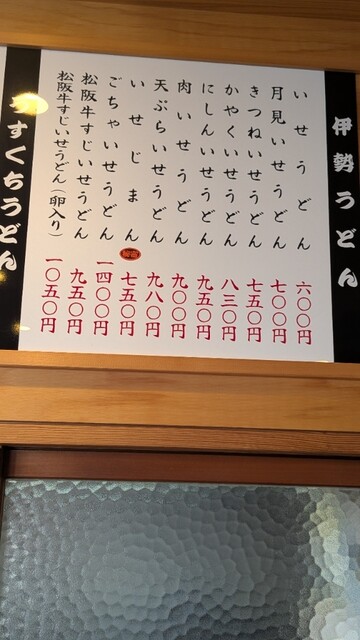 伊勢うどん
いせうどん 六〇〇円
月見いせうどん 七〇〇円
きつねいせうどん 七五〇円
かやくいせうどん 八三〇円
にしんいせうどん 九五〇円
肉いせうどん 九〇〇円
天ぷらいせうどん 九八〇円
いせじまん 七五〇円
ごちゃいせうどん 一四〇〇円
松阪牛すじいせうどん 九五〇円
松阪牛すじいせうどん(卵入り) 一〇五〇円
すくちうどん